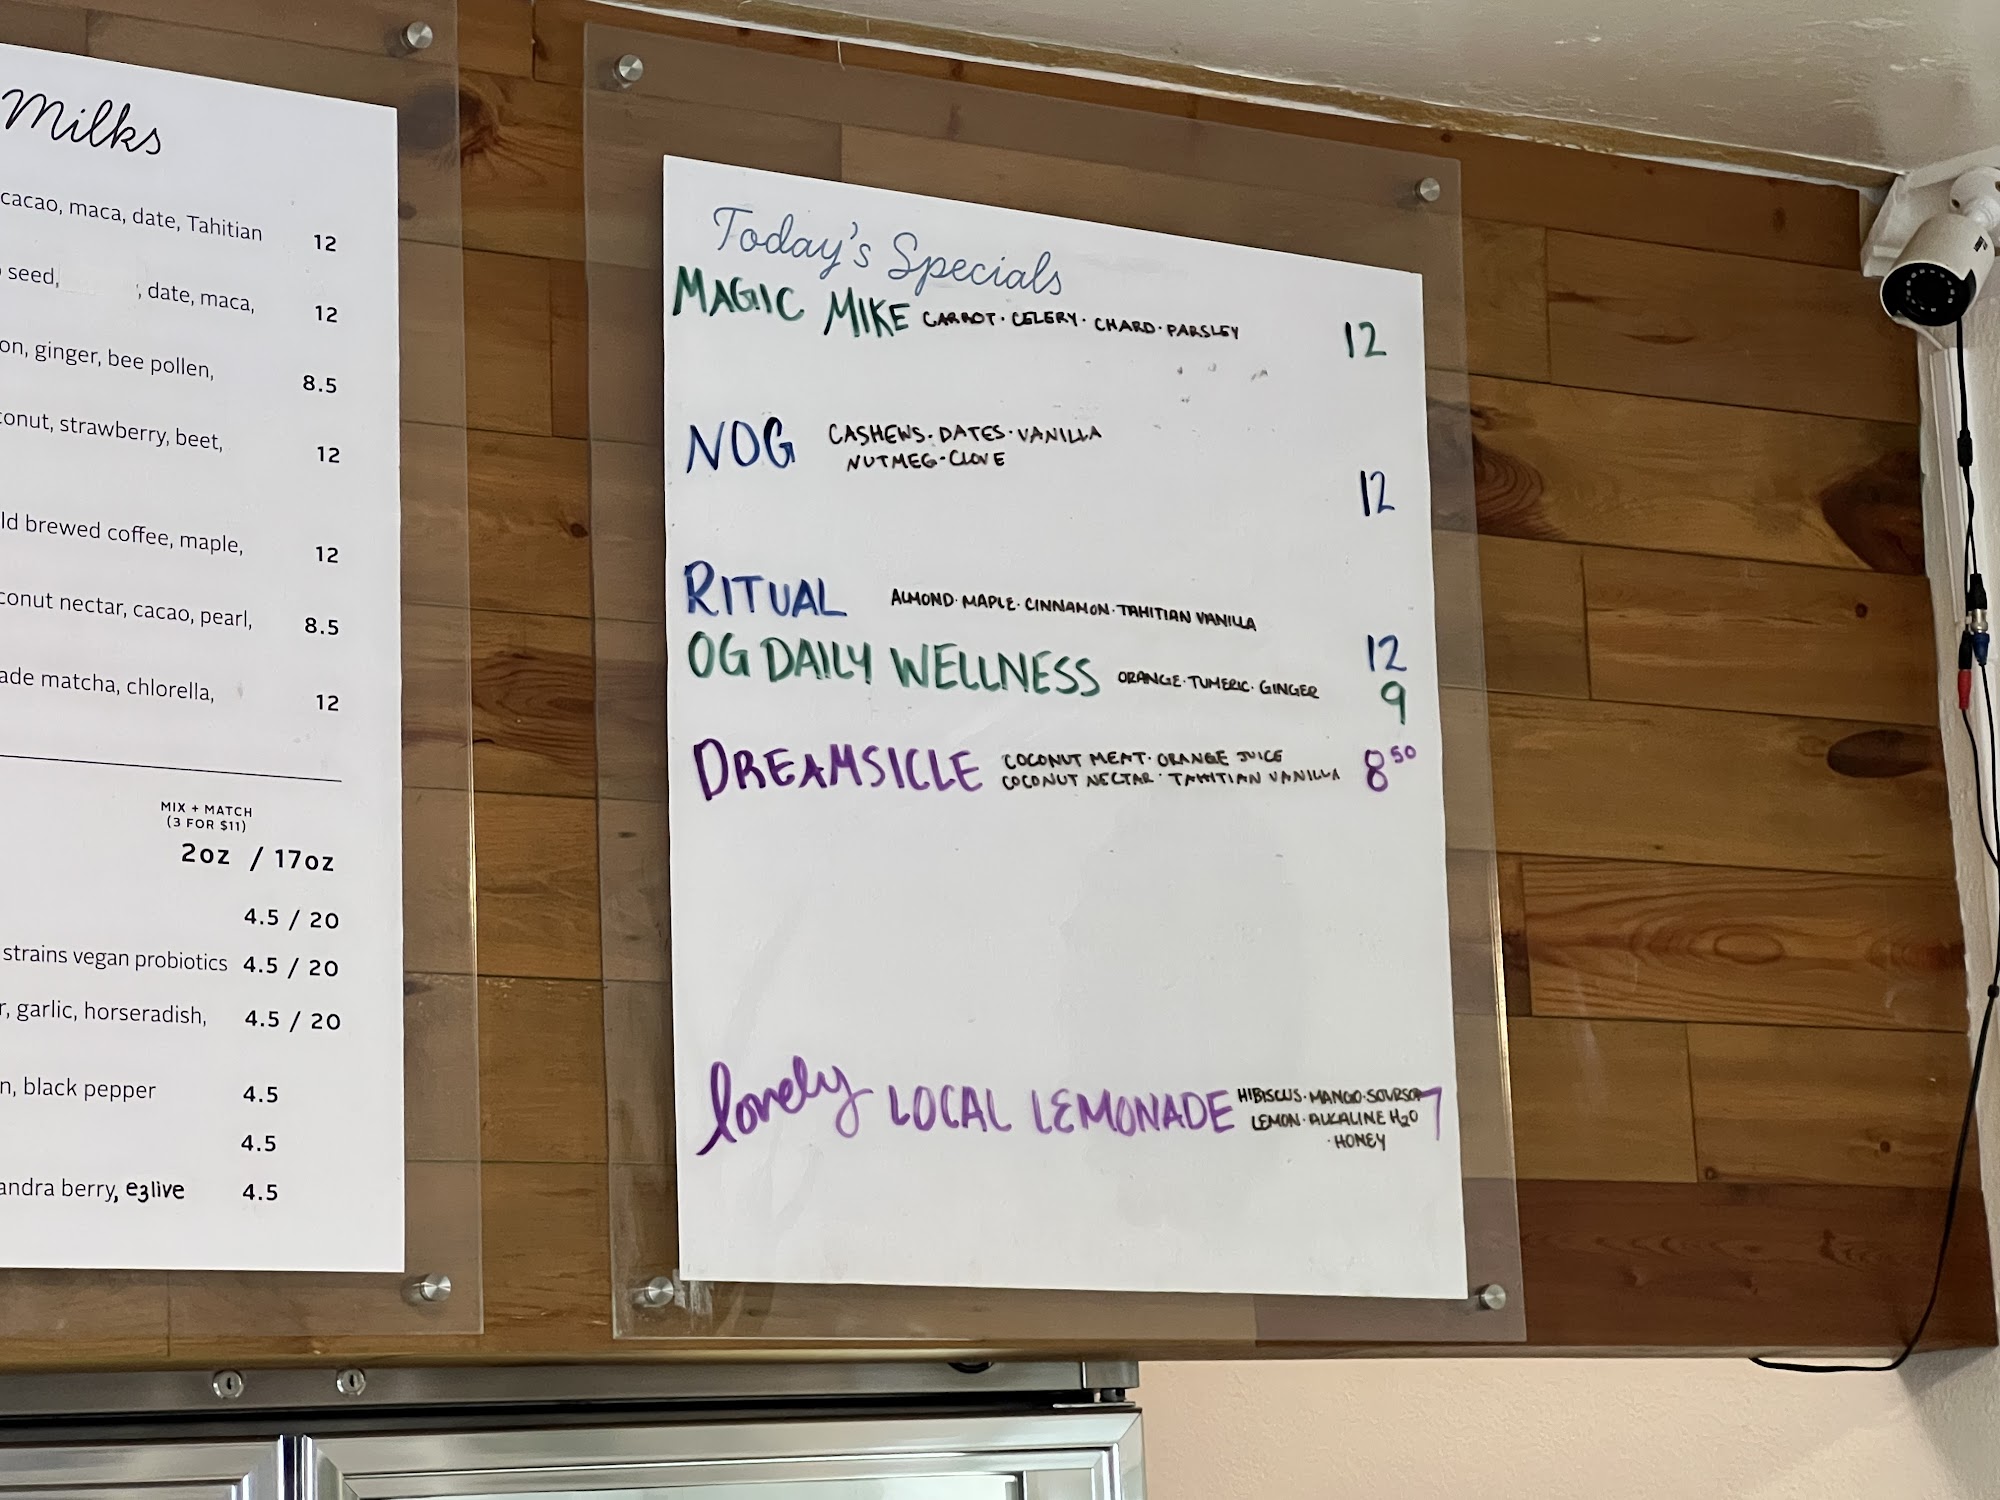 Milks
cacao, maca, date, Tahitian 12
seed, , date, maca, 12
on, ginger, bee pollen, 8.5
conut, strawberry, beet, 12
ld brewed coffee, maple, 12
conut nectar, cacao, pearl, 8.5
ade matcha, chlorella, 12
MIX + MATCH
(3 FOR $11)
2oz / 17oz
4.5 / 20
strains vegan probiotics 4.5 / 20
r, garlic, horseradish, 4.5 / 20
n, black pepper 4.5
4.5
andra berry, e3live 4.5
Today's Specials
MAGIC MIKE CARROT · CELERY · CHARD · PARSLEY 12
NOG CASHEWS · DATES · VANILLA
NUTMEG · CLOVE
12
RITUAL ALMOND · MAPLE · CINNAMON · TAHITIAN VANILLA
12
OG DAILY WELLNESS ORANGE · TUMERIC · GINGER 9
DREAMSICLE COCONUT MEAT · ORANGE JUICE 8 50
COCONUT NECTAR · TAHITIAN VANILLA
lovely LOCAL LEMONADE HIBISCUS · MANGO · SOURSOP 7
LEMON · ALKALINE H2O
· HONEY